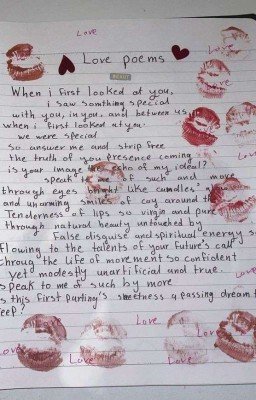 Love
Love poems
Love
When i first looked at you,
i saw somthing special
with you, in you, and between us
when i first looked at you.
we were special
So answer me and strip free
the truth of you presence coming
is your image echo of my ideal?
speak such and more
through eyes bright like candles
and unarming smiles of coy around the
Tenderness of lips so virgin and pure
through natural beauty untouched by
False disguise and spiritual energy s
Flowing to the talents of your future's call
throug the life of movement so confident
yet modestly unartificial and true.
speak to me of such by more
is this first parting's sweetness a passing dream t
eep?
Love
Love
Love
Love
Love